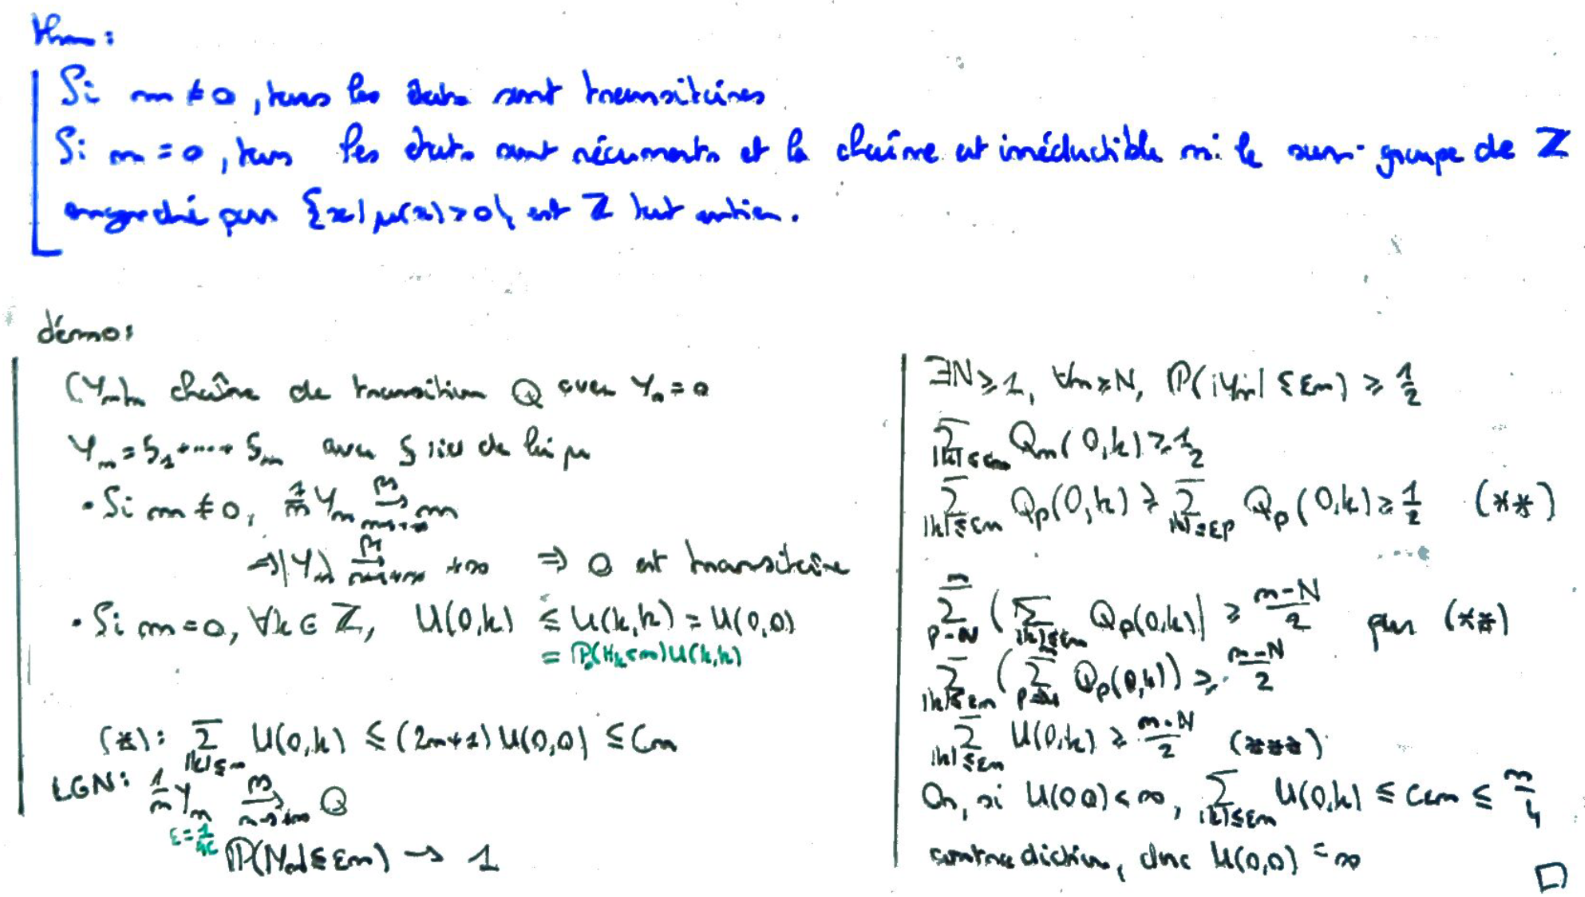 thm:
Si m ≠ 0, tous les états sont transitoires
Si m = 0, tous les états sont récurrents et la chaîne est irréductible ssi le sous-groupe de ℤ
engendré par {x | μ(x) > 0}, est ℤ tout entier.
démo:
(Yₙ)ₙ chaîne de transition Q avec Y₀ = 0
Yₙ = ξ₁ + ... + ξₙ avec ξ iid de loi μ
• Si m ≠ 0, 1/n Yₙ →(n→+∞) m
⇒ |Yₙ| →(n→+∞) +∞ ⇒ 0 est transitoire
• Si m = 0, ∀k ∈ ℤ, U(0,k) ≤ U(k,k) = U(0,0)
= P₀(Hₖ < ∞) U(k,k)
(*): Σ_{|k|≤n} U(0,k) ≤ (2n+1) U(0,0) ≤ Cn
LGN: 1/n Yₙ →(n→+∞) 0
ε = 1/4C
P(|Yₙ| ≤ εn) → 1
∃N ≥ 1, ∀n ≥ N, P(|Yₙ| ≤ εn) ≥ 1/2
Σ_{|k|≤εn} Qₙ(0,k) ≥ 1/2
Σ_{|k|≤εn} Qₚ(0,k) ≥ Σ_{|k|≤εp} Qₚ(0,k) ≥ 1/2 (**)
Σ_{p=N}^{n} (Σ_{|k|≤εn} Qₚ(0,k)) ≥ (n-N)/2 par (**)
Σ_{|k|≤εn} (Σ_{p=N}^{n} Qₚ(0,k)) ≥ (n-N)/2
Σ_{|k|≤εn} U(0,k) ≥ (n-N)/2 (***)
Or, si U(0,0) < ∞, Σ_{|k|≤εn} U(0,k) ≤ Cεn ≤ n/4
contradiction, donc U(0,0) = ∞
□